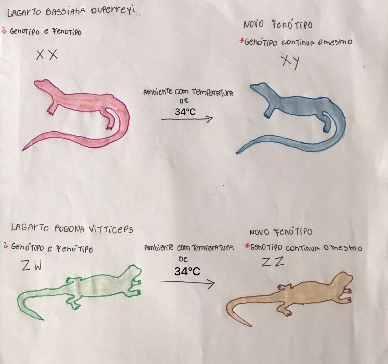 LAGARTO BASSIANA DUPERREYI.
GENÓTIPO E FENÓTIPO
XX
AMBIENTE COM TEMPERATURA
DE
34°C
NOVO FENÓTIPO
*GENÓTIPO CONTINUA O MESMO
XY
LAGARTO POGONA VITTICEPS
GENÓTIPO E FENÓTIPO
ZW
AMBIENTE COM TEMPERATURA
DE
34°C
NOVO FENÓTIPO
*GENÓTIPO CONTINUA O MESMO
ZZ